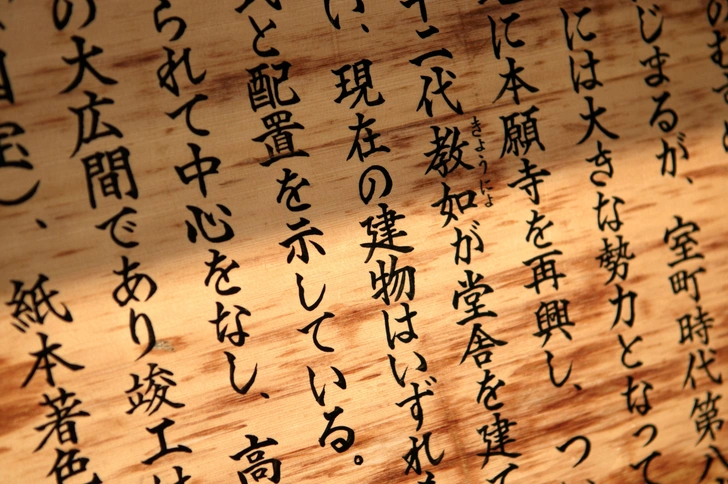 のむす
じまるが、室町時代第八
には大きな勢力となって
に本願寺を再興し、つい
十二代教如が堂舎を建て
きょうにょ
い、現在の建物はいずれも
と配置を示している。
られて中心をなし、高
の大広間であり竣工は
国宝)、紙本著色